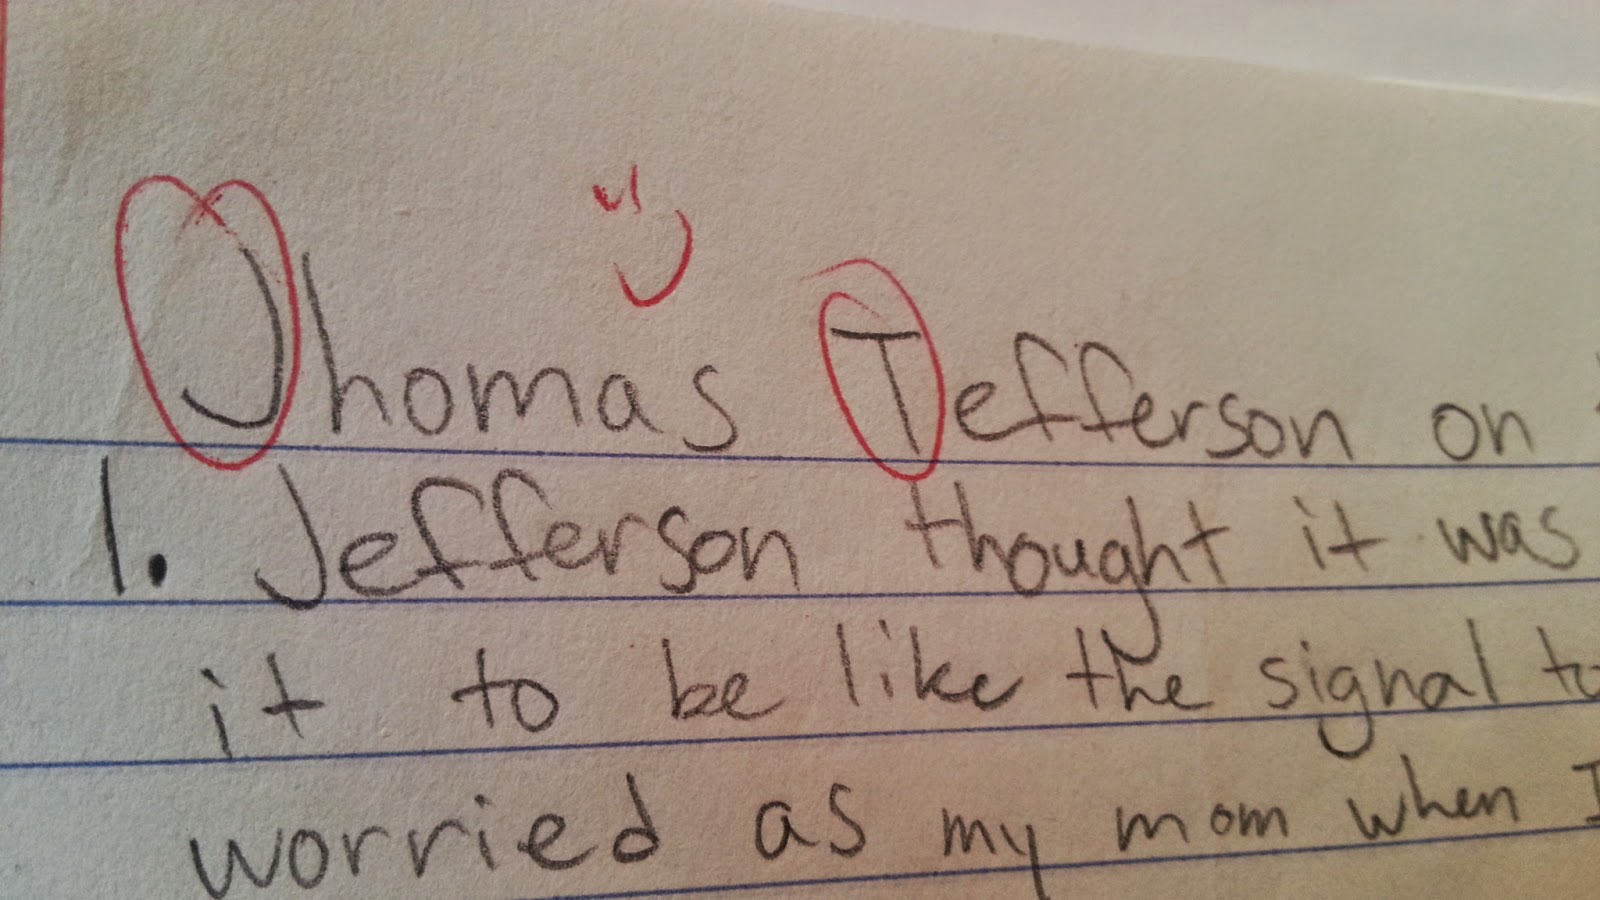 Jhomas Tefferson on
1. Jefferson thought it was
it to be like the signal to
worried as my mom when I